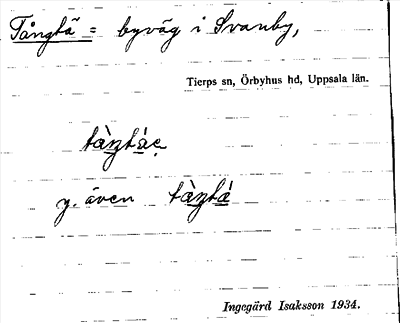 Tångtä = byväg i Svanby,
Tierps sn, Örbyhus hd, Uppsala län.
tàŋtáe
y. även tàŋtá
Ingegärd Isaksson 1934.